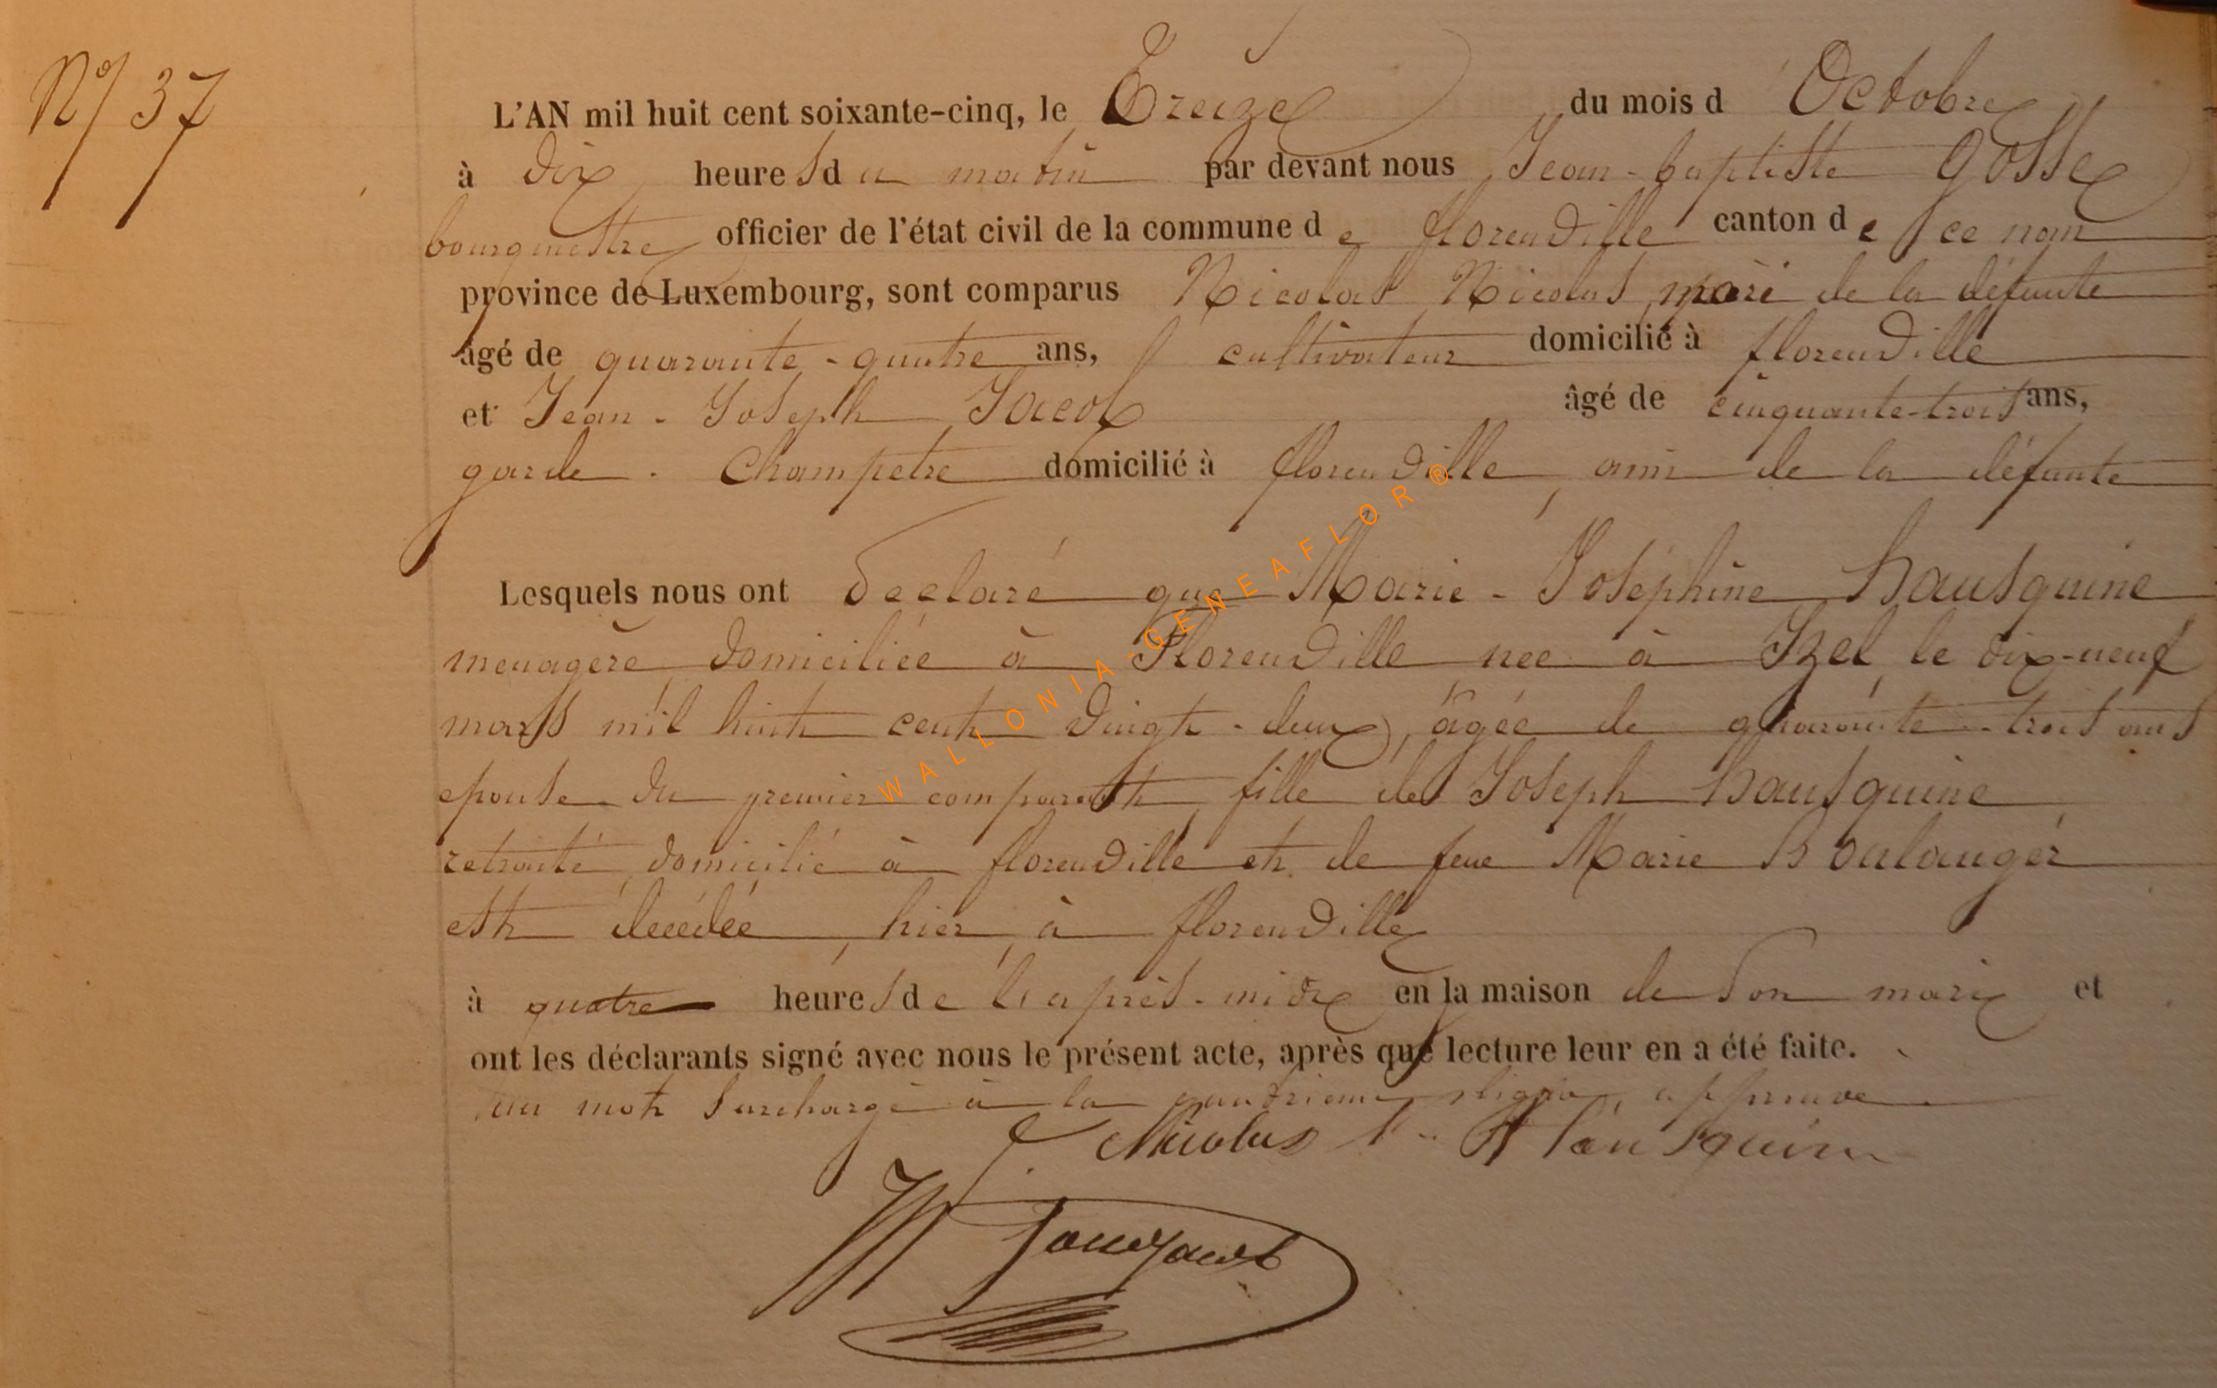 N° 37
L'AN mil huit cent soixante-cinq, le Treize du mois d'Octobre
à dix heures du matin par devant nous Jean-baptiste Gosse
bourgmestre officier de l'état civil de la commune de florenville canton de ce nom
province de Luxembourg, sont comparus Nicolas Nicolas, mari de la défunte
âgé de quarante-quatre ans, cultivateur domicilié à florenville
et Jean-Joseph Jacob âgé de cinquante-trois ans,
garde-Champetre domicilié à florenville, ami de la défunte
Lesquels nous ont déclaré que Marie-Joséphine hausquine
menagère domiciliée à Florenville née à Izel, le dix-neuf
mars mil huit cent vingt-deux, âgée de quarante-trois ans
epouse du premier comparant, fille de Joseph hausquine
retraité, domicilié à florenville et de feue Marie Boulanger
est décédée, hier, à florenville
à quatre heures de l'après-midi en la maison de son mari et
ont les déclarants signé avec nous le présent acte, après que lecture leur en a été faite.
un mot surchargé à la quatrième ligne, approuvé
Nicolas N.
WALLONIA-GENEAFLOR®